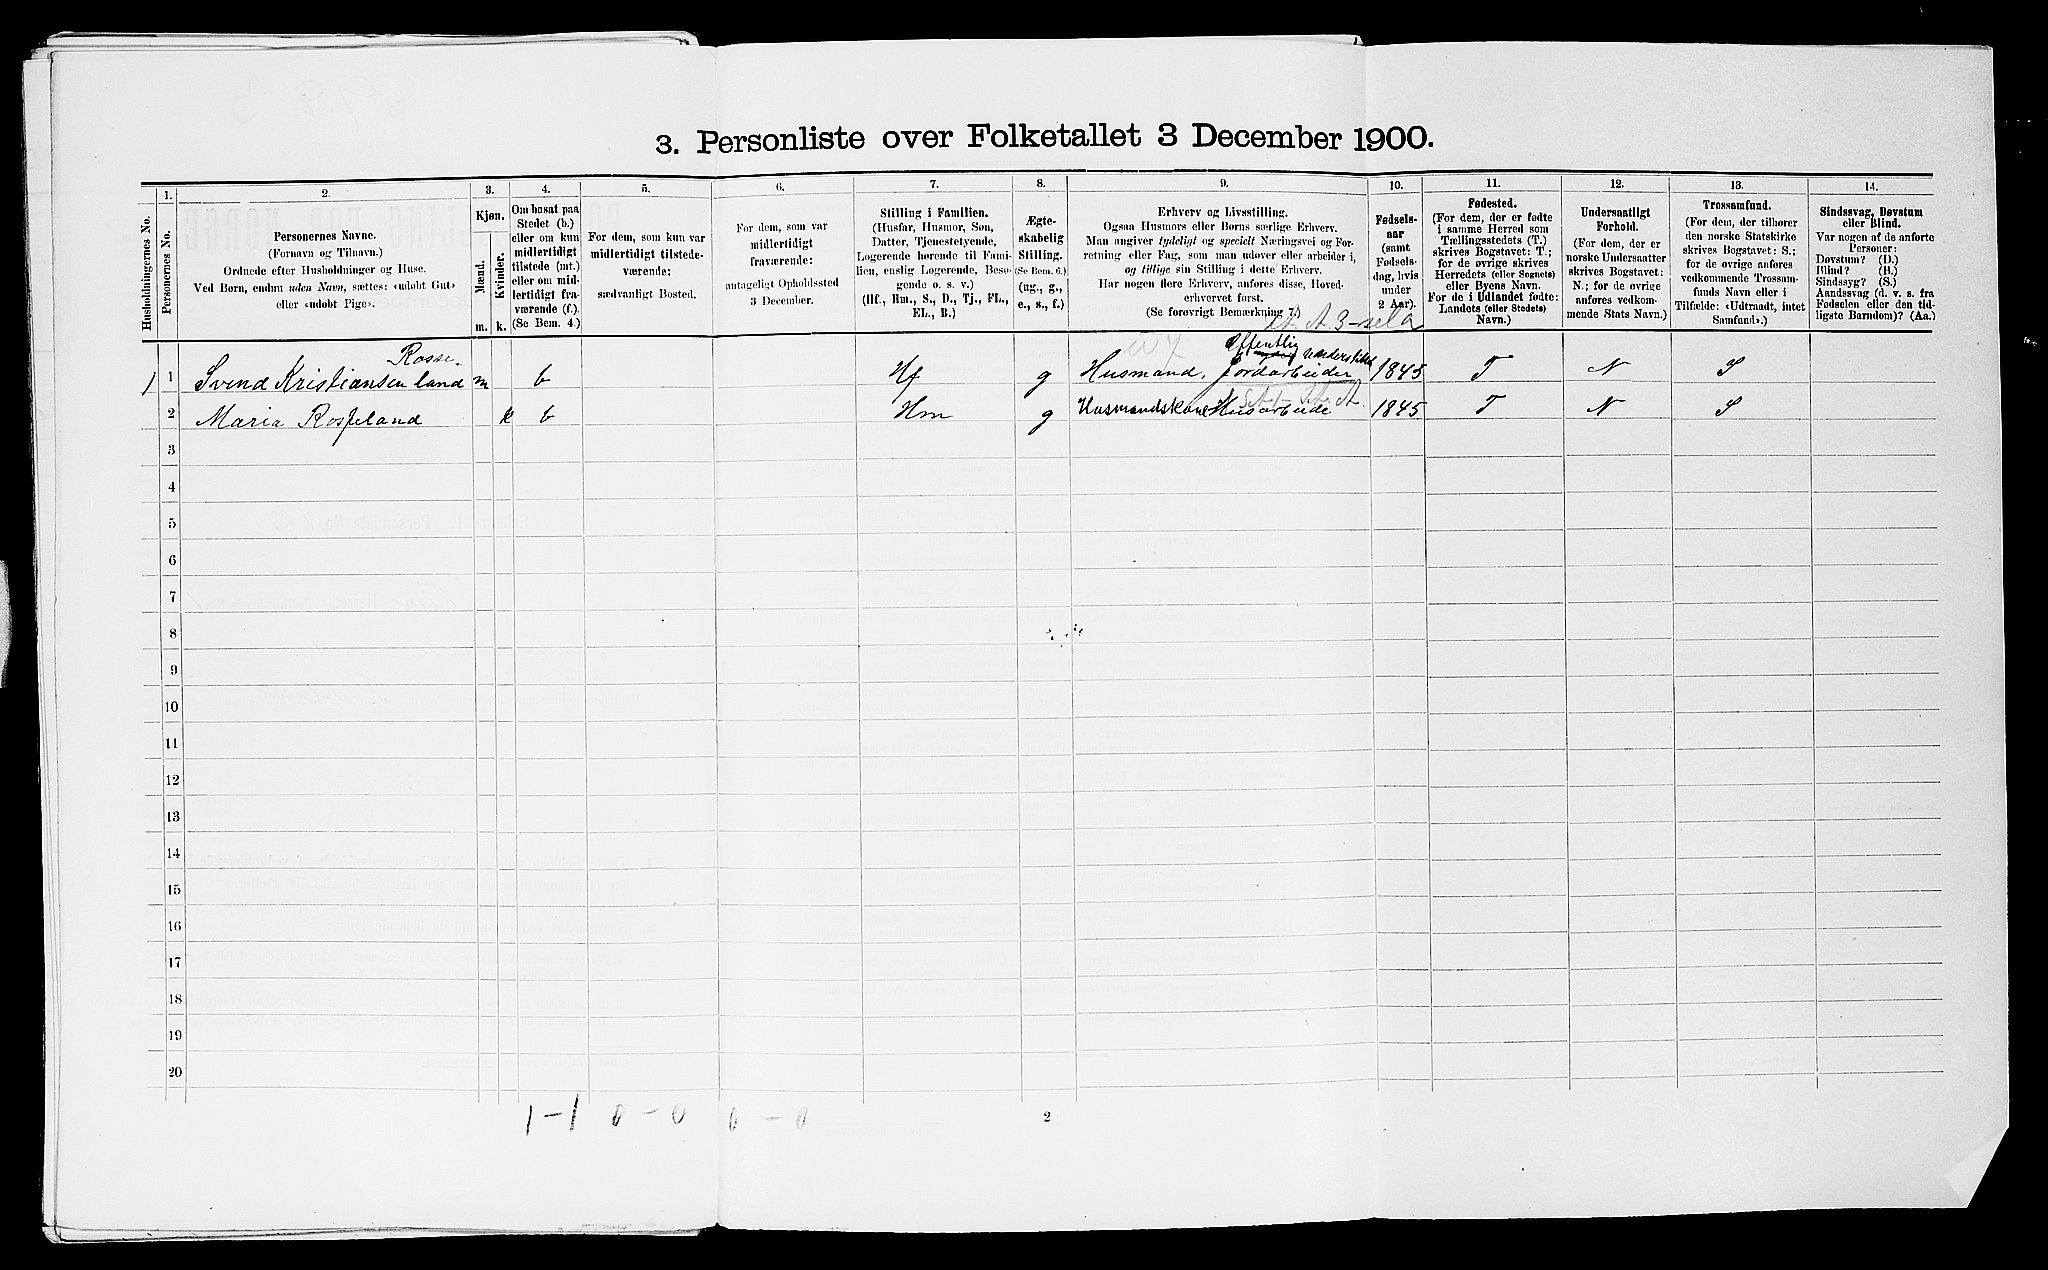 3. Personliste over Folketallet 3 December 1900.
Husholdningernes No.
1.
Personernes No.
2.
Personernes Navne.
(Fornavn og Tilnavn.)
Ordnede efter Husholdninger og Huse.
Ved Børn, endnu uden Navn, sættes: «udøbt Gut»
eller «udøbt Pige».
3.
Kjøn.
Mænd.
Kvinder.
m.
k.
4.
Om bosat paa
Stedet (b.)
eller om kun
midlertidigt
tilstede (mt.)
eller om mid-
lertidigt fra-
værende (f.).
(Se Bem. 4.)
5.
For dem, som kun var
midlertidigt tilstede-
værende:
sædvanligt Bosted.
6.
For dem, som var
midlertidigt
fraværende:
antageligt Opholdssted
3 December.
7.
Stilling i Familien.
(Husfar, Husmor, Søn,
Datter, Tjenestetyende,
Logerende hørende til Fami-
lien, enslig Logerende, Besø-
gende o. s. v.)
(Hf., Hm., S., D., Tj., FL.,
EL., B.)
8.
Ægte-
skabelig
Stilling.
(Se Bem. 6.)
(ug., g.,
e., s., f.)
9.
Erhverv og Livsstilling.
Ogsaa Husmors eller Børns særlige Erhverv.
Man angiver tydeligt og specielt Næringsvei og For-
retning eller Fag, som man udøver eller arbeider i,
og tillige sin Stilling i dette Erhverv.
Har nogen flere Erhverv, anføres disse, Hoved-
erhvervet først.
(Se forøvrigt Bemærkning 7.)
10.
Fødsels-
aar
(samt
Fødsels-
dag, hvis
under
2 Aar).
11.
Fødested.
(For dem, der er fødte
i samme Herred som
Tællingsstedets (T.)
skrives Bogstavet: T.;
for de øvrige skrives
Herredets (eller Sognets)
eller Byens Navn.
For de i Udlandet fødte:
Landets (eller Stedets)
Navn.)
12.
Undersaatligt
Forhold.
(For dem, der er
norske Undersaatter
skrives Bogstavet:
N.; for de øvrige
anføres vedkom-
mende Stats Navn.)
13.
Trossamfund.
(For dem, der tilhører
den norske Statskirke
skrives Bogstavet: S.;
for de øvrige anføres
vedkommende Trossam-
funds Navn eller i
Tilfælde: «Udtraadt, intet
Samfund».)
14.
Sindssvag, Døvstum
eller Blind.
Var nogen af de anførte
Personer:
Døvstum? (D.)
Blind? (B.)
Sindssyg? (S.)
Aandssvag (d. v. s. fra
Fødselen eller den tid-
ligste Barndom)? (Aa.)
Rosse- Offentlig understøttet
1 1 Svend Kristiansen land m b Hf g Husmand, Jordarbeider 1845 T N S
2 Maria Rosseland k b Hm g Husmandskone Husarbeide 1845 T N S
3
4
5
6
7
8
9
10
11
12
13
14
15
16
17
18
19
20
1-1 0-0 0-0
2